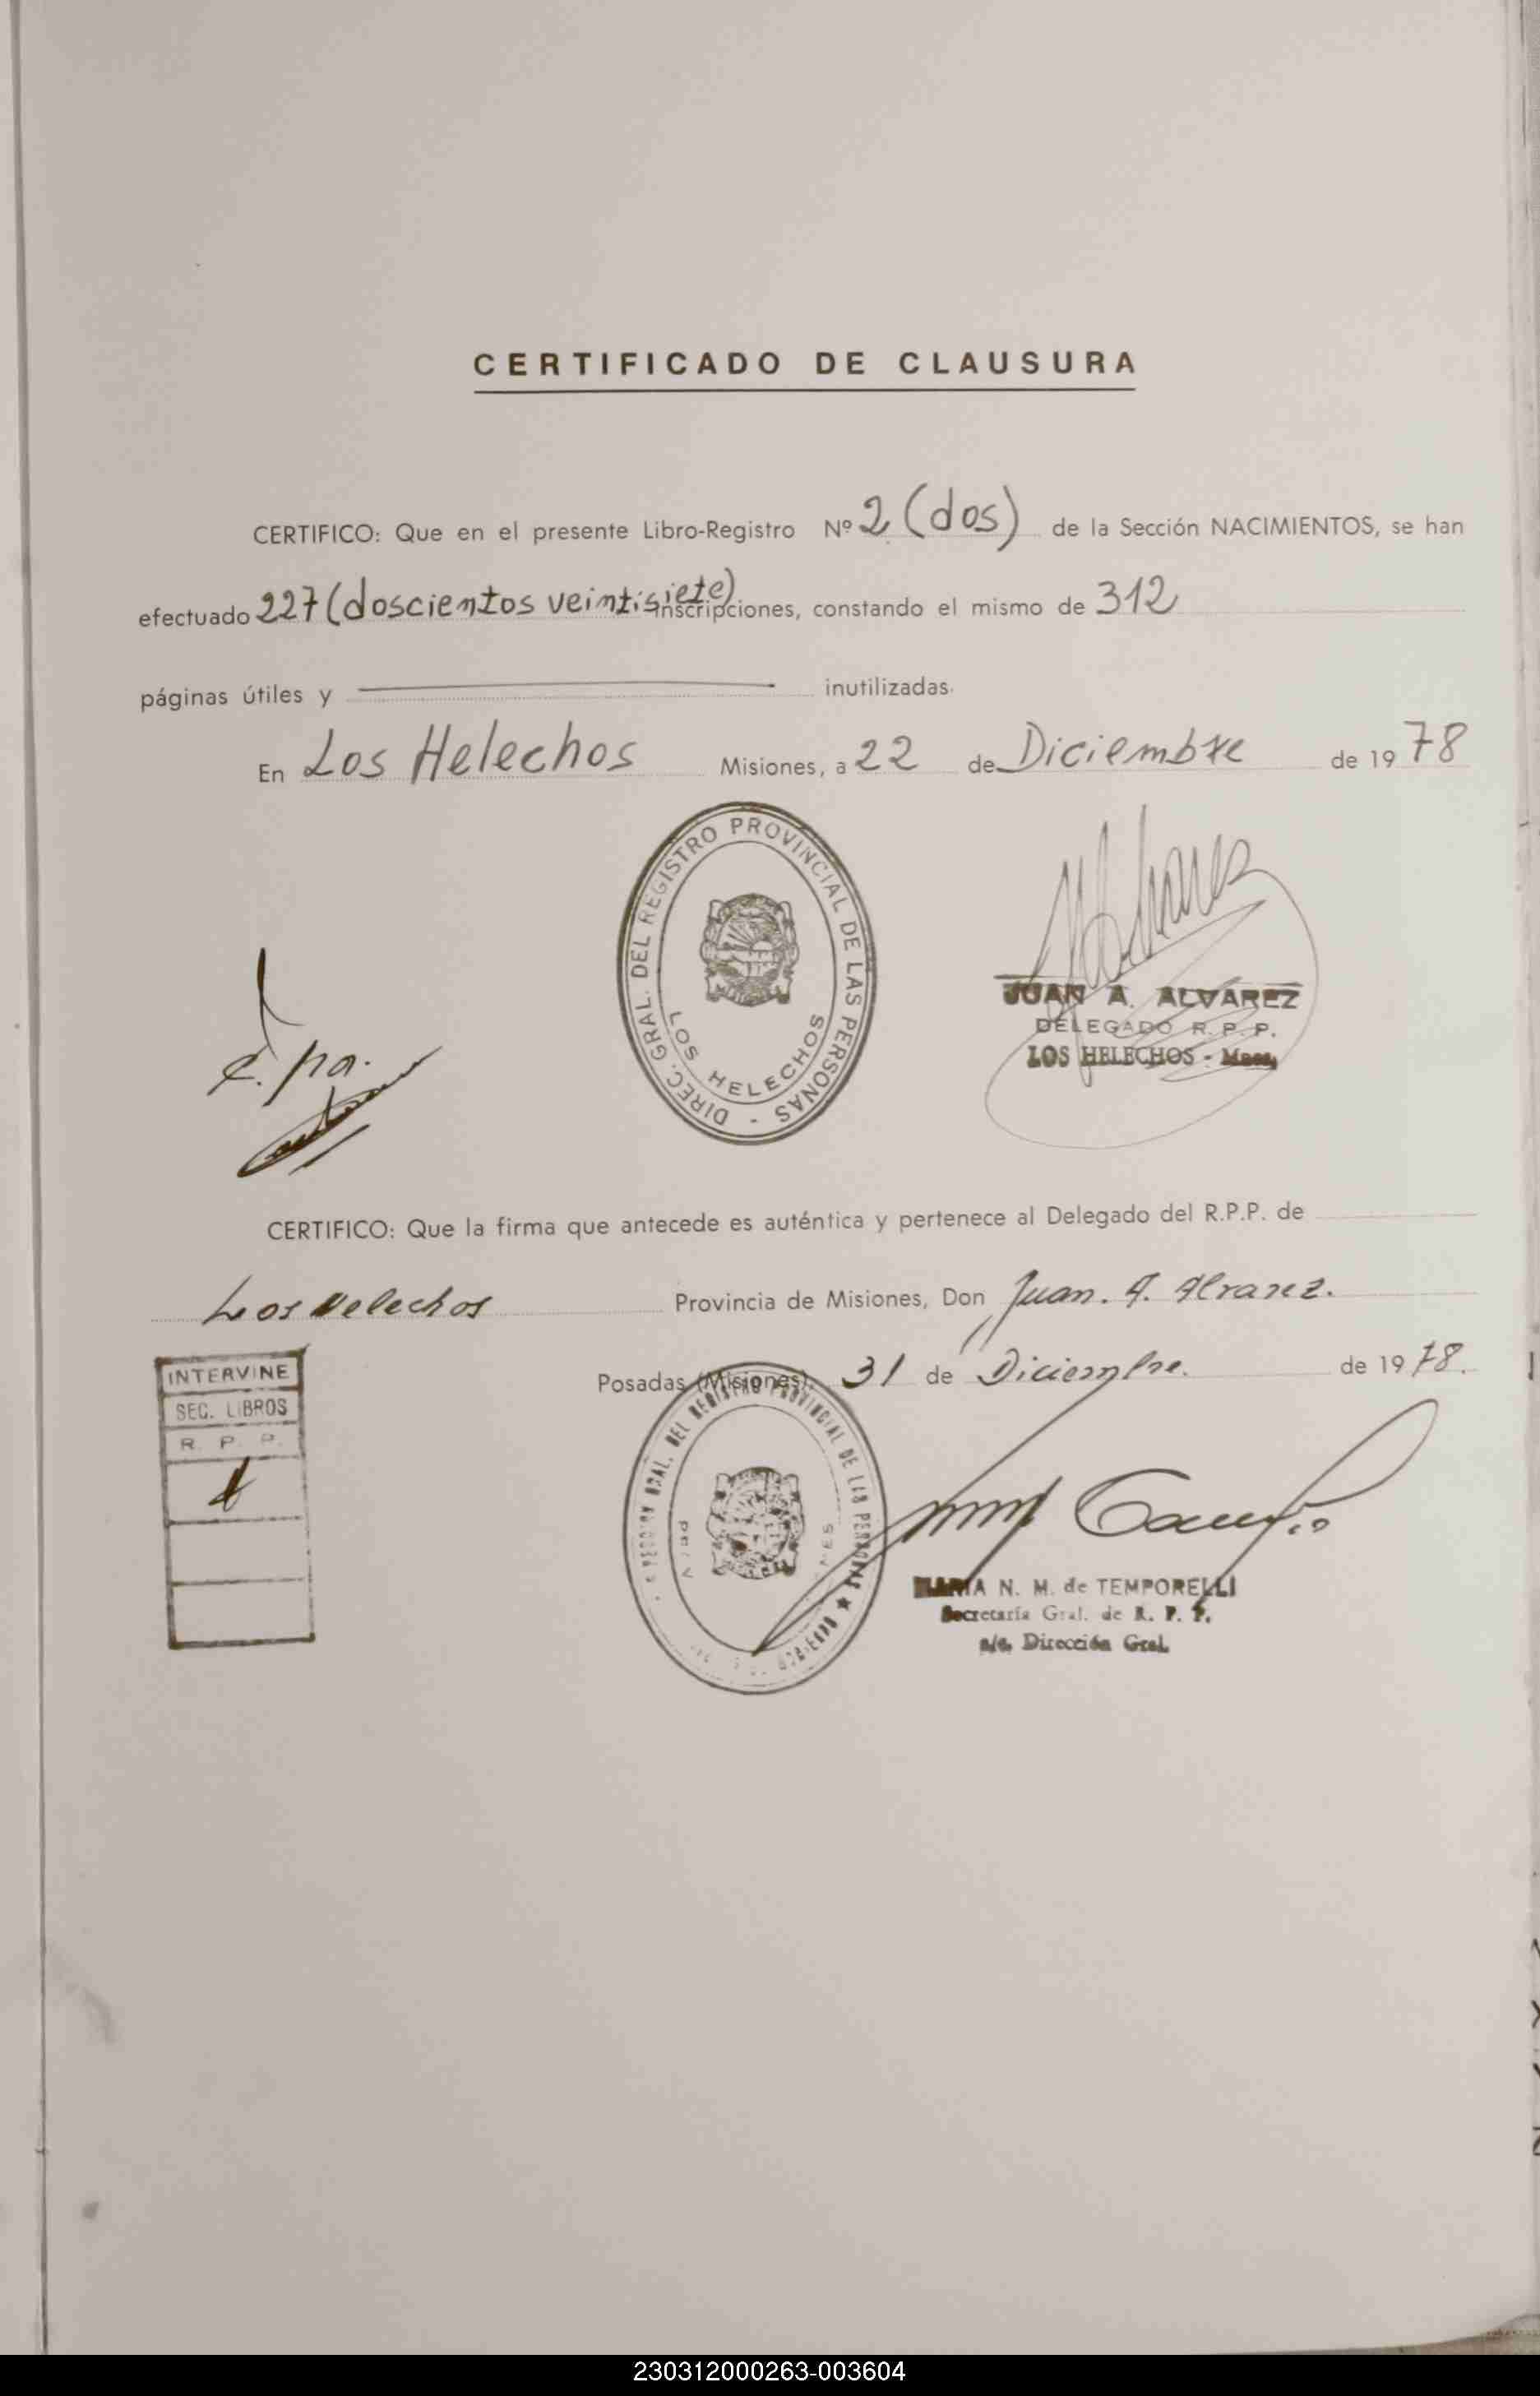 CERTIFICADO DE CLAUSURA
CERTIFICO: Que en el presente Libro-Registro Nº 2 (dos) de la Sección NACIMIENTOS, se han
efectuado 227 (doscientos veintisiete) inscripciones, constando el mismo de 312
páginas útiles y inutilizadas.
En Los Helechos Misiones, a 22 de Diciembre de 1978
DIREC. GRAL. DEL REGISTRO PROVINCIAL DE LAS PERSONAS -
LOS HELECHOS
JUAN A. ALVAREZ
DELEGADO R. P. P.
LOS HELECHOS - Mnes.
CERTIFICO: Que la firma que antecede es auténtica y pertenece al Delegado del R.P.P. de
Los Helechos Provincia de Misiones, Don Juan. A. Alvarez.
Posadas (Misiones), 31 de Diciembre. de 1978.
INTERVINE
SEC. LIBROS
R. P. P.
GRAL. DEL REGISTRO PROVINCIAL DE LAS PERSONAS
MARIA N. M. de TEMPORELLI
Secretaría Gral. de R. P. P.
a/c. Dirección Gral.
230312000263-003604